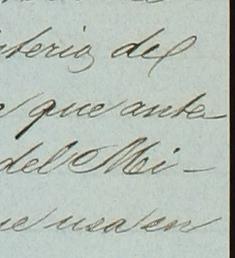 isterio del
e que ante-
del Mi-
ue usa en